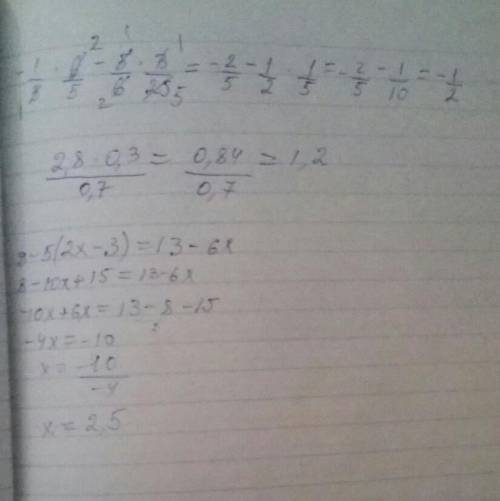 -1/3 · 6/5 - 5/6 · 3/25 = -2/5 - 1/2 · 1/5 = -2/5 - 1/10 = -1/2
2,8 · 0,3 / 0,7 = 0,84 / 0,7 = 1,2
8 - 5(2x - 3) = 13 - 6x
8 - 10x + 15 = 13 - 6x
-10x + 6x = 13 - 8 - 15
-4x = -10
x = -10 / -4
x = 2,5